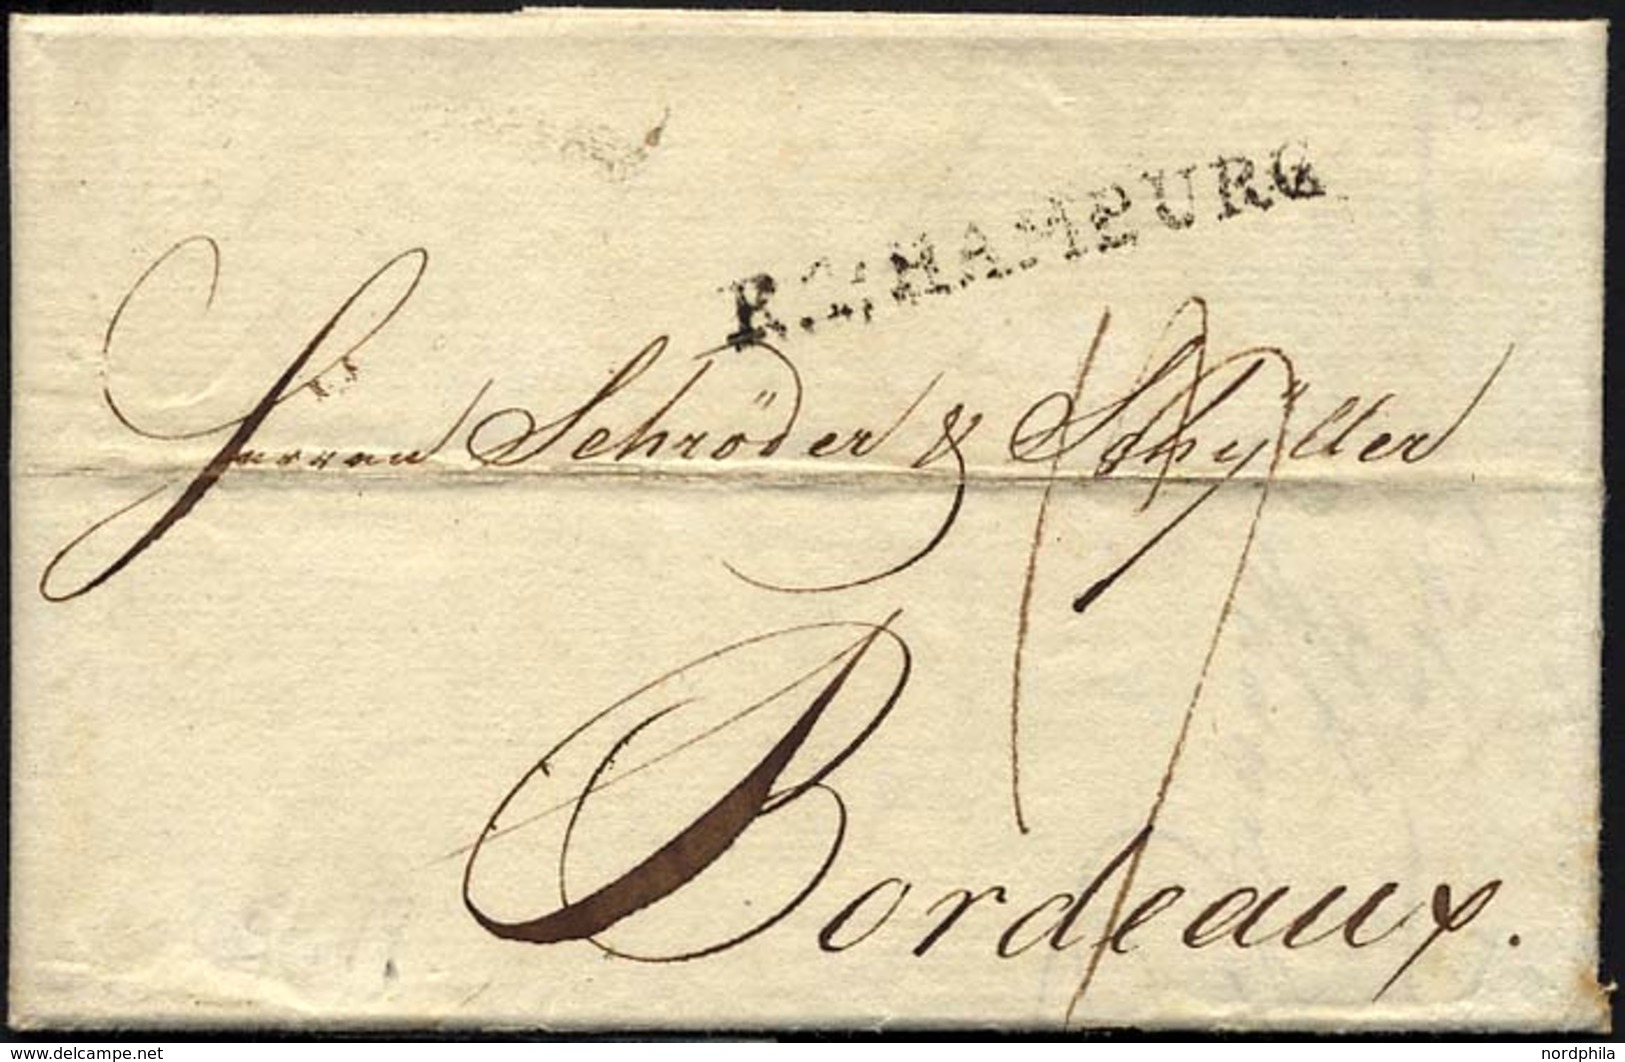 R.4.HAMBURG
Herren Schröder & Schÿller
Bordeaux.
www.delcampe.net
nordphila